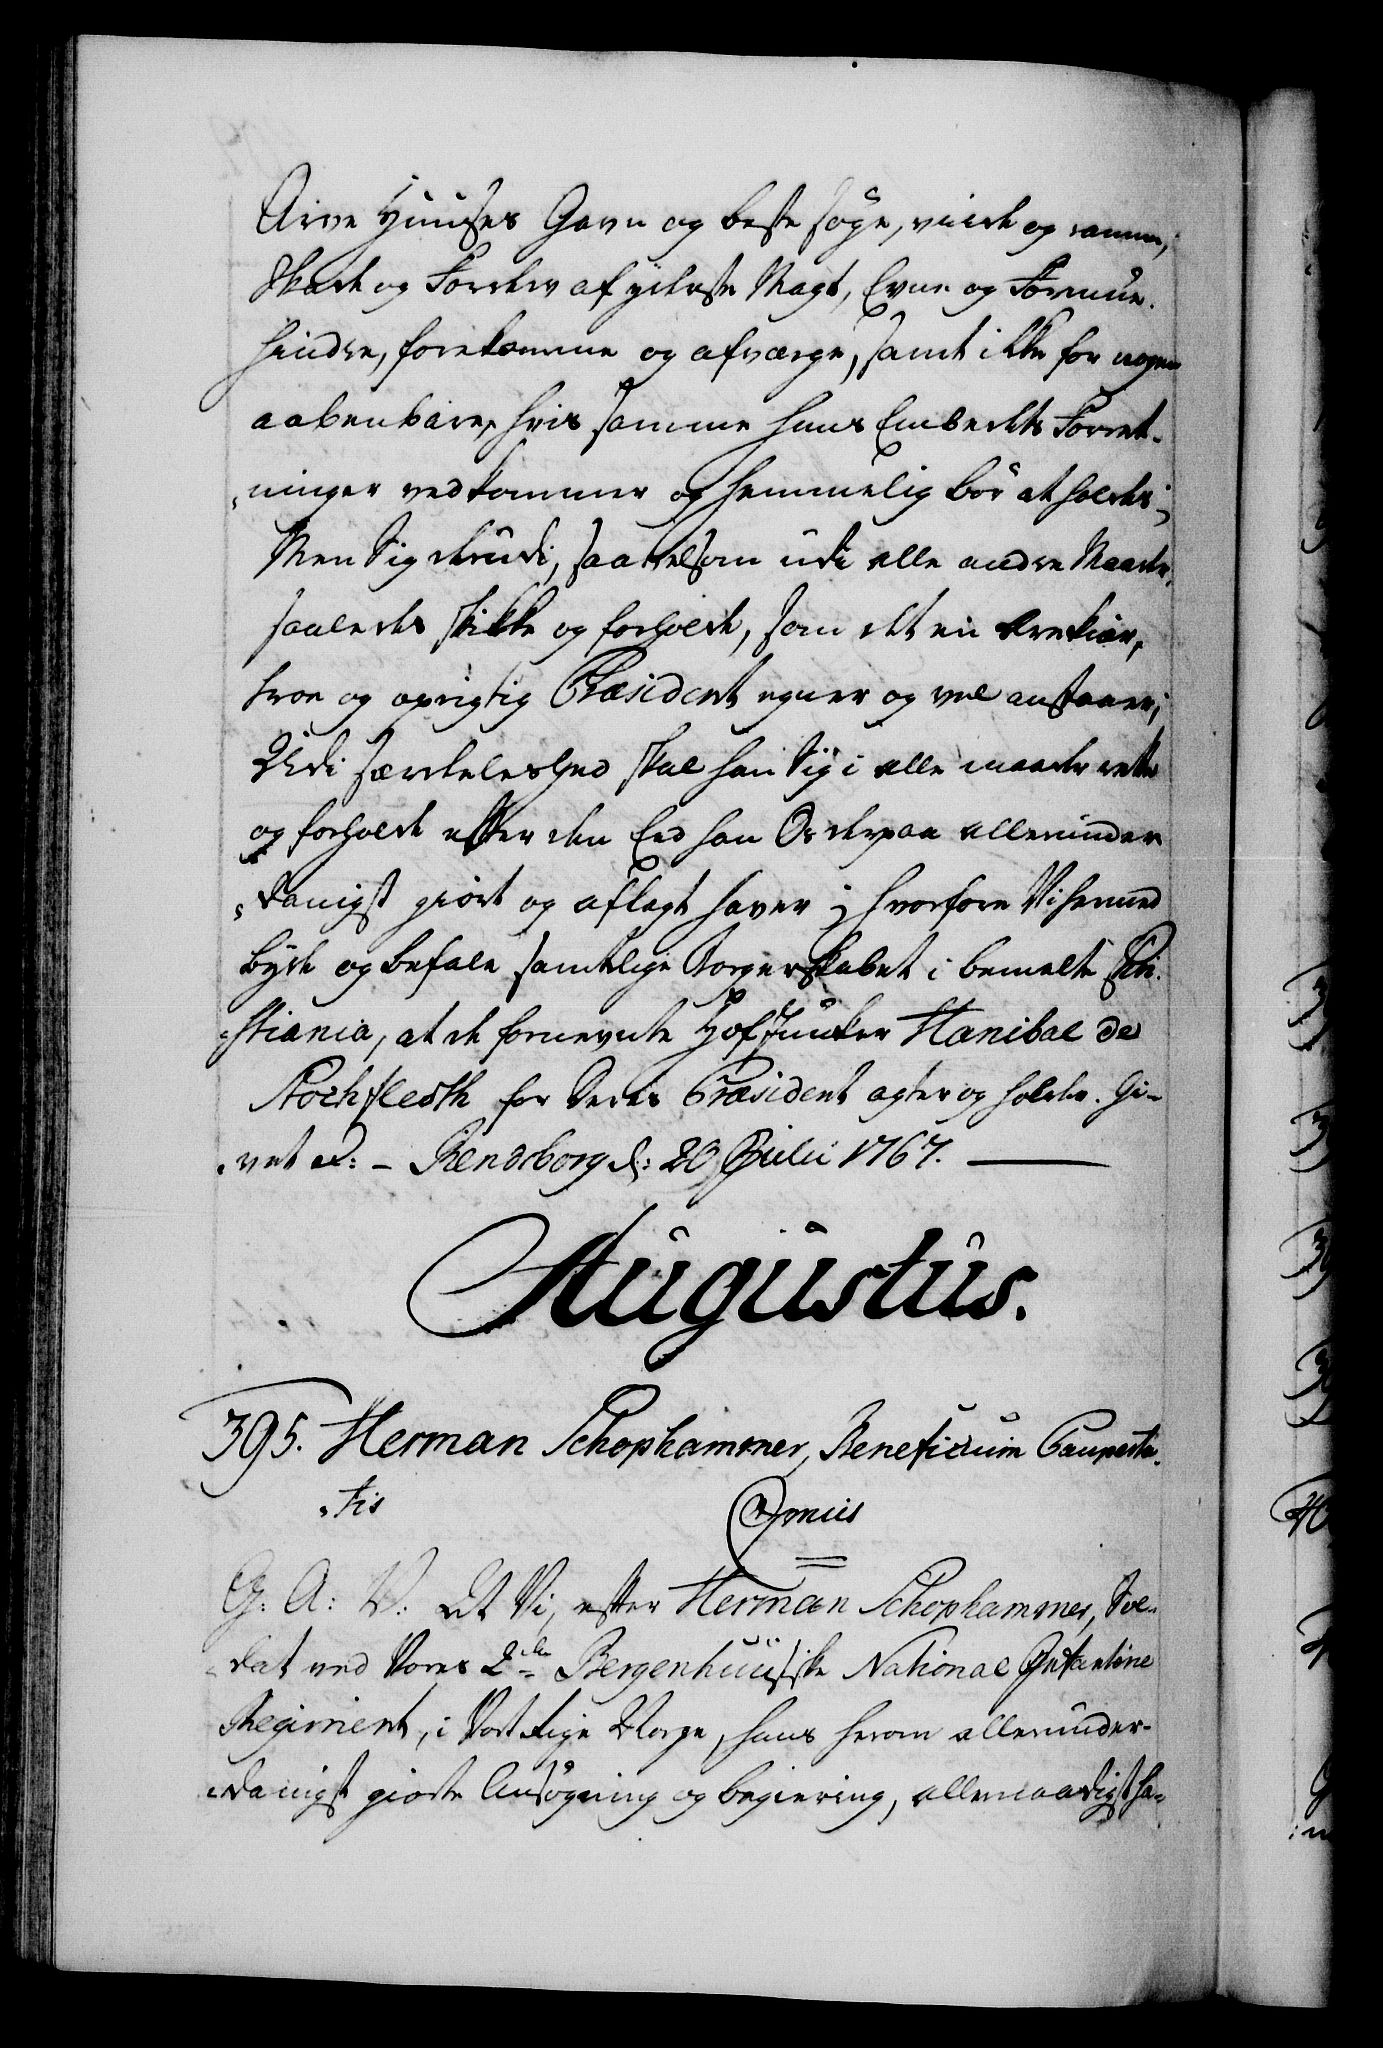 Arve Huuses Gavn og beste søge, viide og ramme,
Skade og Forderv af yderste Magt, Evne og Formue
hindre, forekomme og afværge, samt ikke for nogen
aabenbare, hvis samme hans Embeds Forret-
ninger vedkommer og hemmelig bør at holdes;
Men Sig derudi, saavelsom udi alle andre Maader,
saaledes skikke og forholde, som det en ærekiær,
troe og oprigtig Præsident egner og vel anstaaer;
Udi særdeleshed skal han Sig i alle maader rette
og forholde efter den Eed han Os derpaa allerunder
danigst giort og aflagt haver; hvorfore Vi hermed
byde og befale samtlige Borgerskabet i bemelte Chri-
stiania, at de fornevnte HofJunker Hanibal de
Stockfledth for Deres Præsident agter og holder. Gi-
vet etc: - Rendsborg d: 20 Julii 1767.
Augustus.
395. Herman Schophammer, Beneficium Pauperta-
tis
G: A: V: At Vi, efter Herman Schophammer, Sol-
dat ved Vores 2det Bergenhuusiske National Infanterie
Regiment, i Vort Rige Norge, hans herom allerunder-
danigst giorte Ansøgning og begiering, allernaadigst ha-